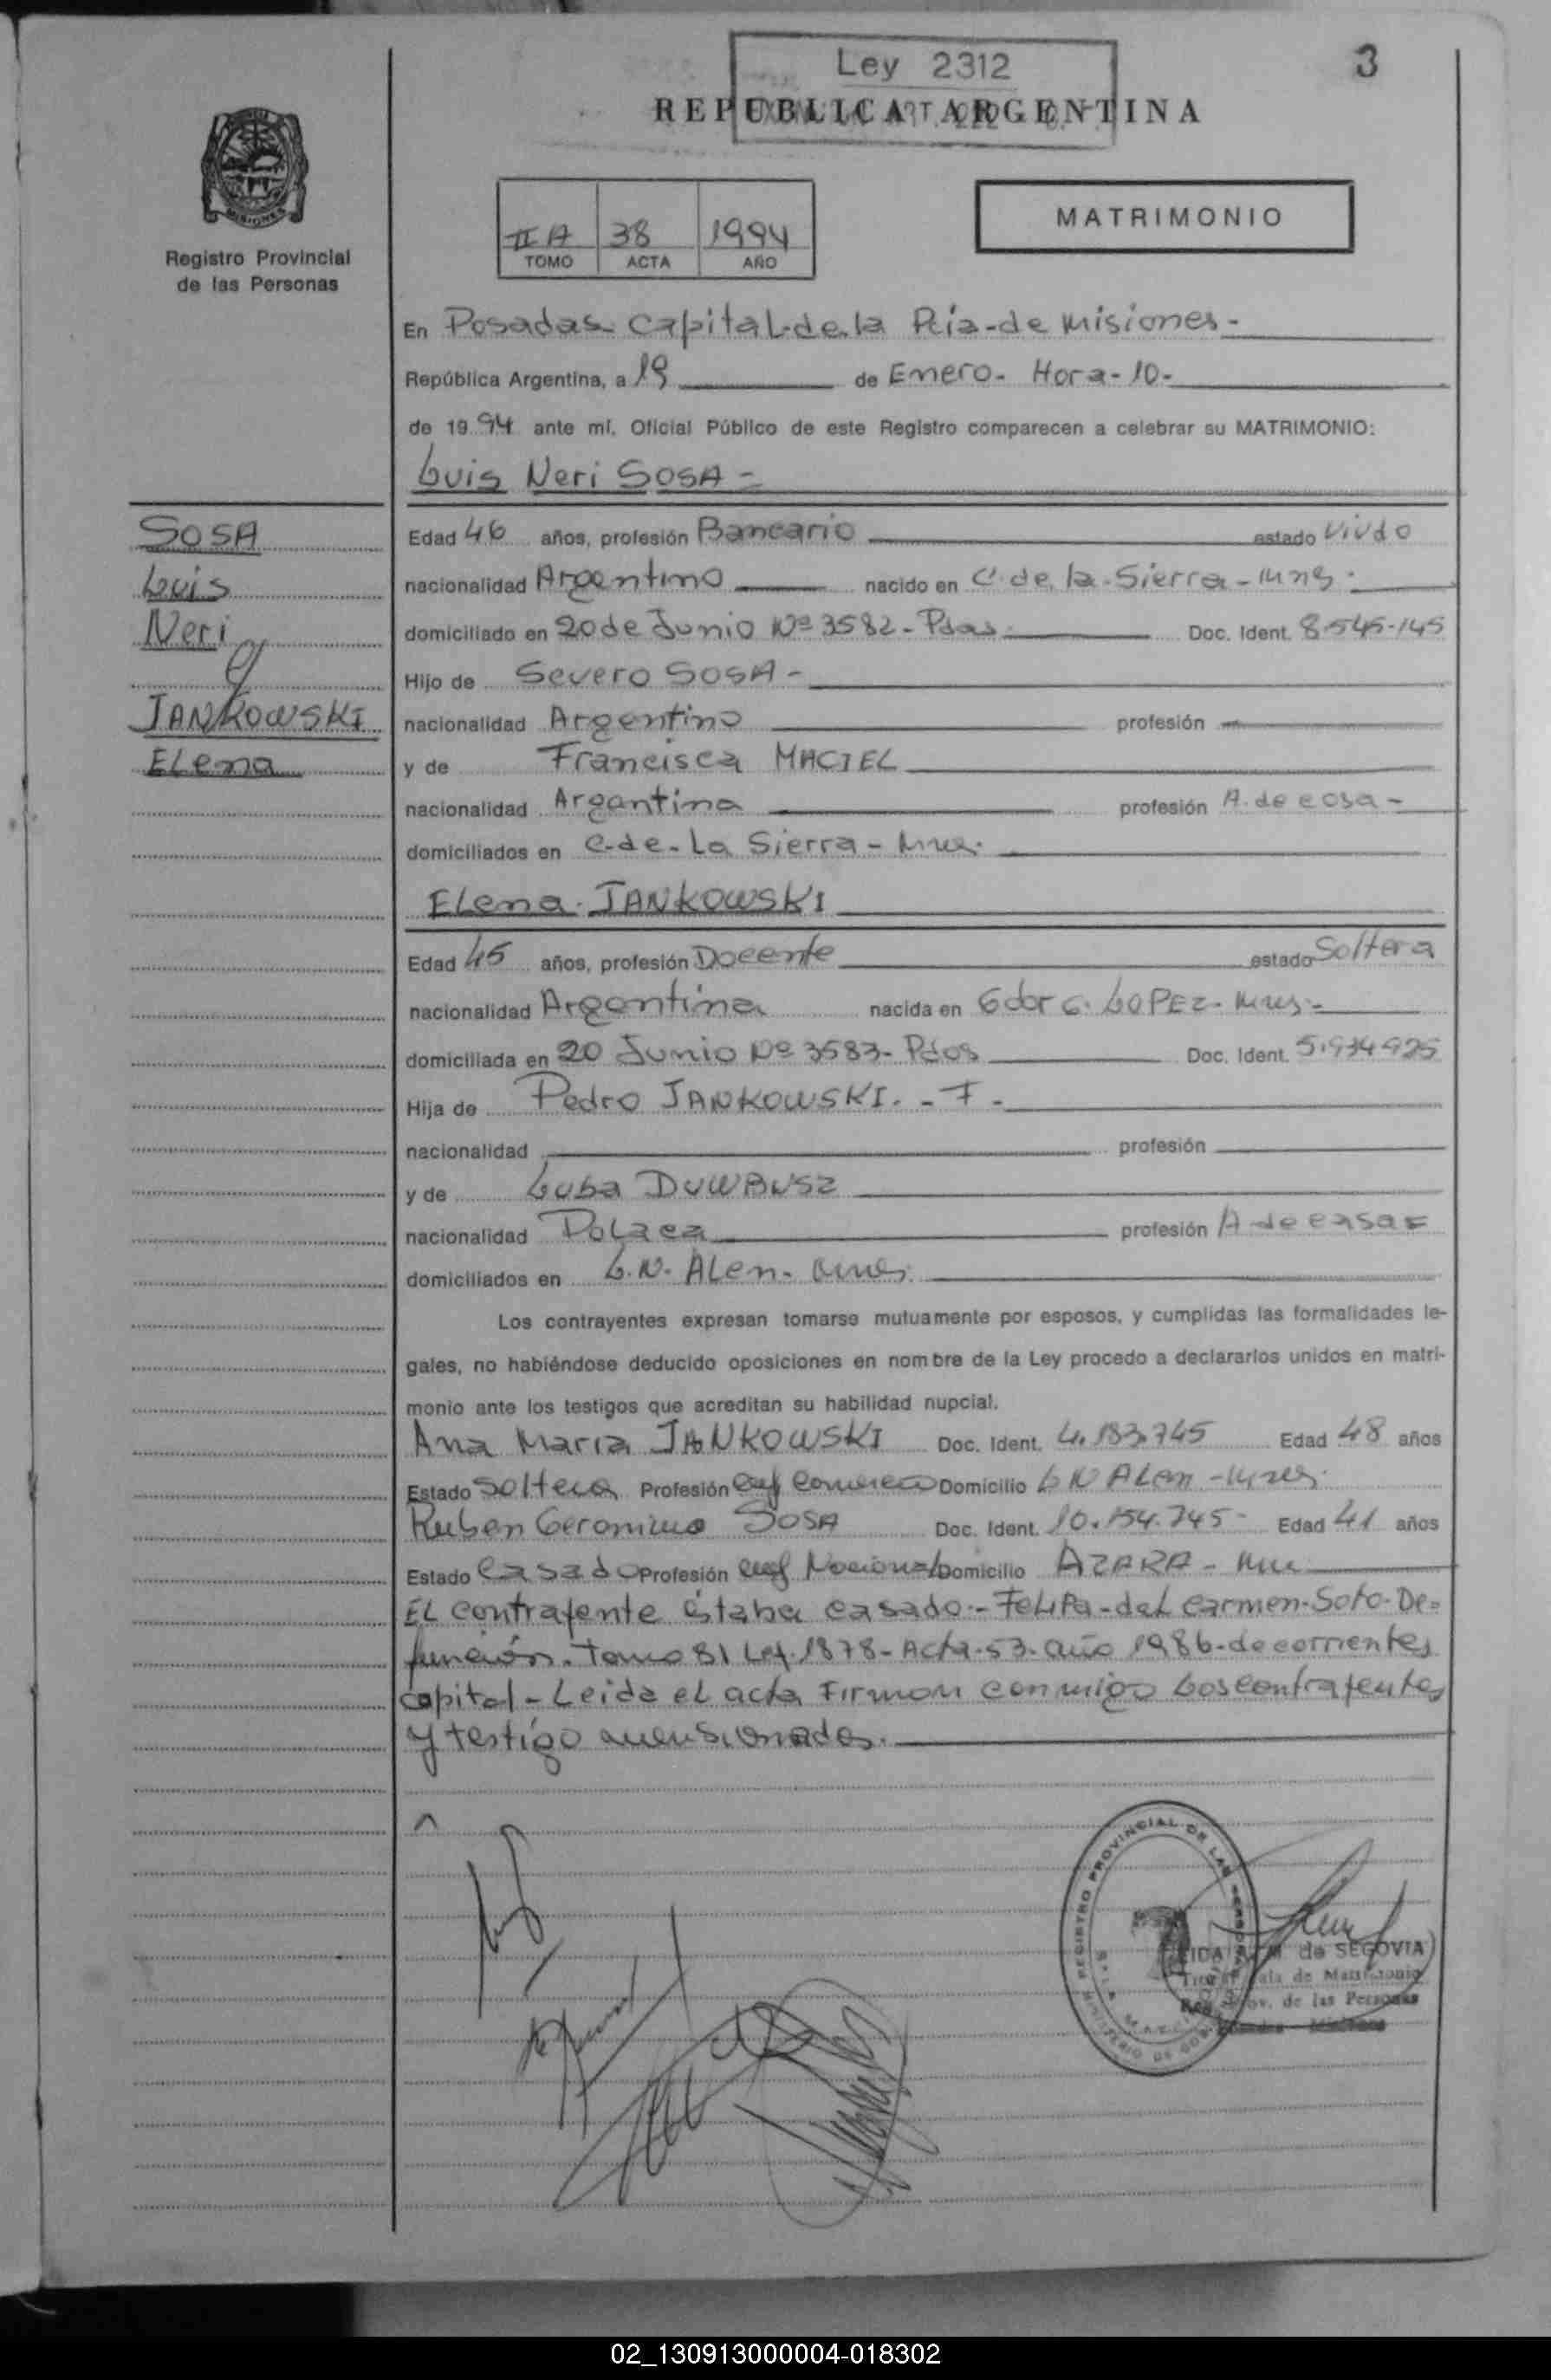 Ley 2312
3
REPUBLICA ARGENTINA
MISIONES
Registro Provincial
de las Personas
II A 38 1994
TOMO ACTA AÑO
MATRIMONIO
En Posadas Capital de la Pcia-de Misiones-
República Argentina, a 19 de Enero- Hora-10-
de 1994 ante mí, Oficial Público de este Registro comparecen a celebrar su MATRIMONIO:
Luis Neri SOSA-
SOSA
Luis
Neri
y
JANKOWSKI
Elena
Edad 46 años, profesión Bancario estado Viudo
nacionalidad Argentino nacido en C. de la-Sierra-Mns-
domiciliado en 20 de Junio Nº 3582-Pdas- Doc. Ident. 8.545-145
Hijo de Severo SOSA-
nacionalidad Argentino profesión
y de Francisca MACIEL
nacionalidad Argentina profesión A. de casa-
domiciliados en C-de-La Sierra-Mnes.
Elena-JANKOWSKI
Edad 45 años, profesión Docente estado Soltera
nacionalidad Argentina nacida en Gdor G. LOPEZ-Mnes-
domiciliada en 20 Junio Nº 3583-Pdas Doc. Ident. 5.934925
Hija de Pedro JANKOWSKI.-F-
nacionalidad profesión
y de Luba DUWBUSZ
nacionalidad Polaca profesión A-de casa=
domiciliados en L.N. ALen-Mnes.
Los contrayentes expresan tomarse mutuamente por esposos, y cumplidas las formalidades le-
gales, no habiéndose deducido oposiciones en nombre de la Ley procedo a declararlos unidos en matri-
monio ante los testigos que acreditan su habilidad nupcial.
Ana Maria JANKOWSKI Doc. Ident. 4.183.745 Edad 48 años
Estado Soltera Profesión Comercio Domicilio L N ALem-Mnes.
Ruben Geronimo SOSA Doc. Ident. 10.154.745- Edad 41 años
Estado Casado Profesión Nacional Domicilio AZARA-Mnes
EL contrayente estaba casado:-FeLiPa-deL Carmen-Soto-De=
función. Tomo 81 Ley.1878-Acta-53-año 1986-de corrientes
capital-Leida el acta Firman conmigo Los contrayentes
y testigo mensionados.
REGISTRO PROVINCIAL DE LAS PERSONAS
MINISTERIO DE
de SEGOVIA
Sala de Matrimonio
Reg. Prov. de las Personas
Posadas Misiones
02_130913000004-018302